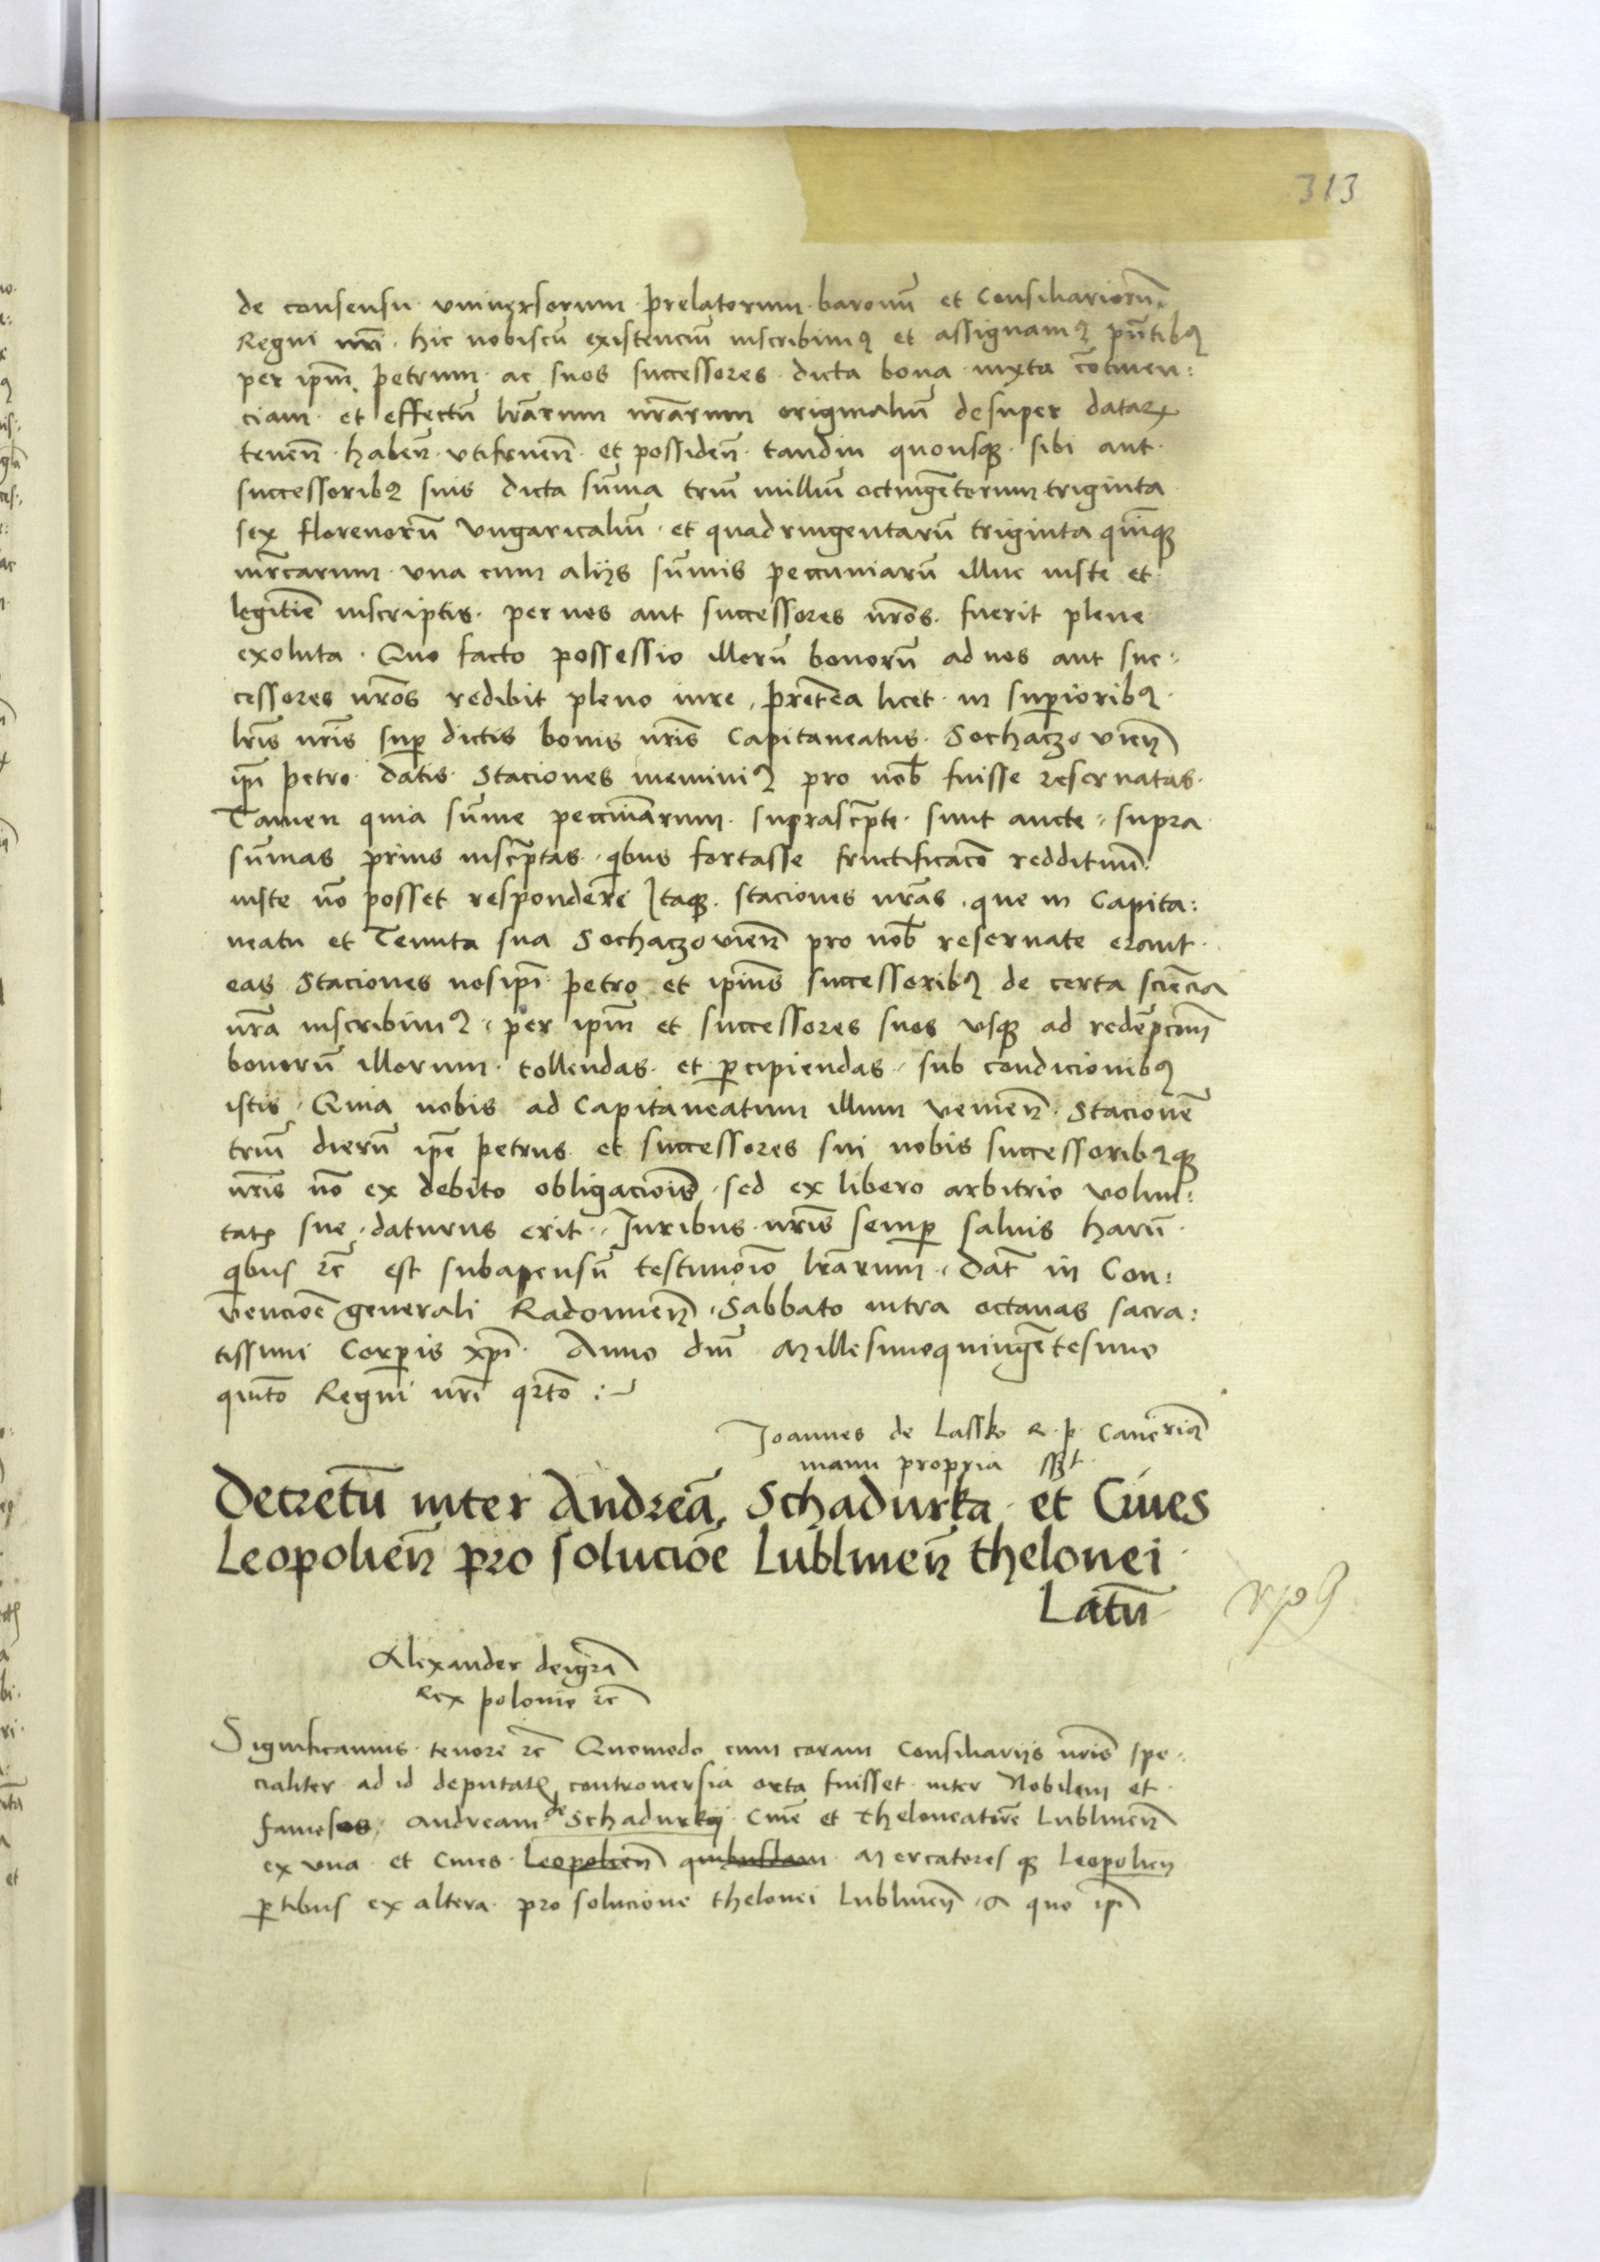 313
de consensu vniuersorum prelatorum baronū et Consiliariorū
Regni nr̄i hic nobiscū existenciū inscribimꝰ et assignamꝰ pn̄tibꝰ
per ip̄m petrum ac suos successores dicta bona iuxta cōtinen:
ciam et effectū lr̄arum nr̄arum originaliū desuper datarꝝ
tenen̄ haben̄ vtifruen̄ et possiden̄ tandiu quousqꝫ sibi aut
successoribꝰ suis dicta sūma triū milliū octingētorum triginta
sex florenorū Vngaricaliū et quadringentarū triginta quīqꝫ
mr̄carum vna cum alijs sūmis peccuniarū illuc iuste et
legitīe inscriptis per nos aut successores nr̄os fuerit plene
exoluta Quo facto possessio illorū bonorū ad nos aut suc:
cessores nr̄os redibit pleno iure, pretēea licet in suꝑioribꝰ
lr̄is nr̄is suꝑ dictis bonis nr̄is Capitaneatus Sochaczouien̄
ip̄i petro datis Staciones meminimꝰ pro nob̄ fuisse reseruatas
Tamen quia sūme peccuniarum suprascr̄pte sunt aucte supra
sūmas prius inscr̄ptas quibus fortasse fructificacō reddituū
iuste nō posset respondere Itaqꝫ staciones nr̄as que in Capita:
neatu et Tenuta sua Sochaczouien̄ pro nob̄ reseruate erant
eas Staciones nos ip̄i petro et ipīus successoribꝰ de certa sciēcia
nr̄a inscribimꝰ per ip̄m et successores suos vsqꝫ ad redēpcōm̄
bonorū illorum tollendas et ꝑcipiendas sub condicionibꝰ
istis Quia nobis ad Capitaneatum illum venien̄ Stacionē
triū dierū ip̄e petrus et successores sui nobis successoribꝰqꝫ
nr̄is nō ex debito obligaciois̄ sed ex libero arbitrio volun:
tatꝭ sue daturus erit Iuribus nr̄is semꝑ saluis harū
quibus ꝛc̄ est subapensū testimoīo lr̄arum Dat̄ in Con:
vencioē generali Radomien̄ Sabbato intra octauas sacra:
tissimi Corꝑis xp̄i Anno dn̄i Millesimoquingētesimo
quīto Regni nr̄i qr̄to
Joannes de Lassko R. p. Cancʳiꝰ
manu propria sszt
Decretū inter Andreā Schadurka et Ciues
Leopolien̄ pro solucioē Lublinen̄ thelonei
Latū
Alexander dei gr̄a
Rex polonie ꝛc̄
Significamus tenore ꝛc̄ Quomodo cum coram Consiliarijs nr̄is spe:
cialiter ad id deputatꝭ controuersia orta fuisset inter Nobilem et
famosos Andream de Schadurky Ciuē et theloneatorē Lublinen̄
ex vna et Ciues Leopolien̄ quibusdam Mercatoresqꝫ Leopolien̄
ꝑtibus ex altera pro solucione thelonei Lublinen̄ a quo ip̄i